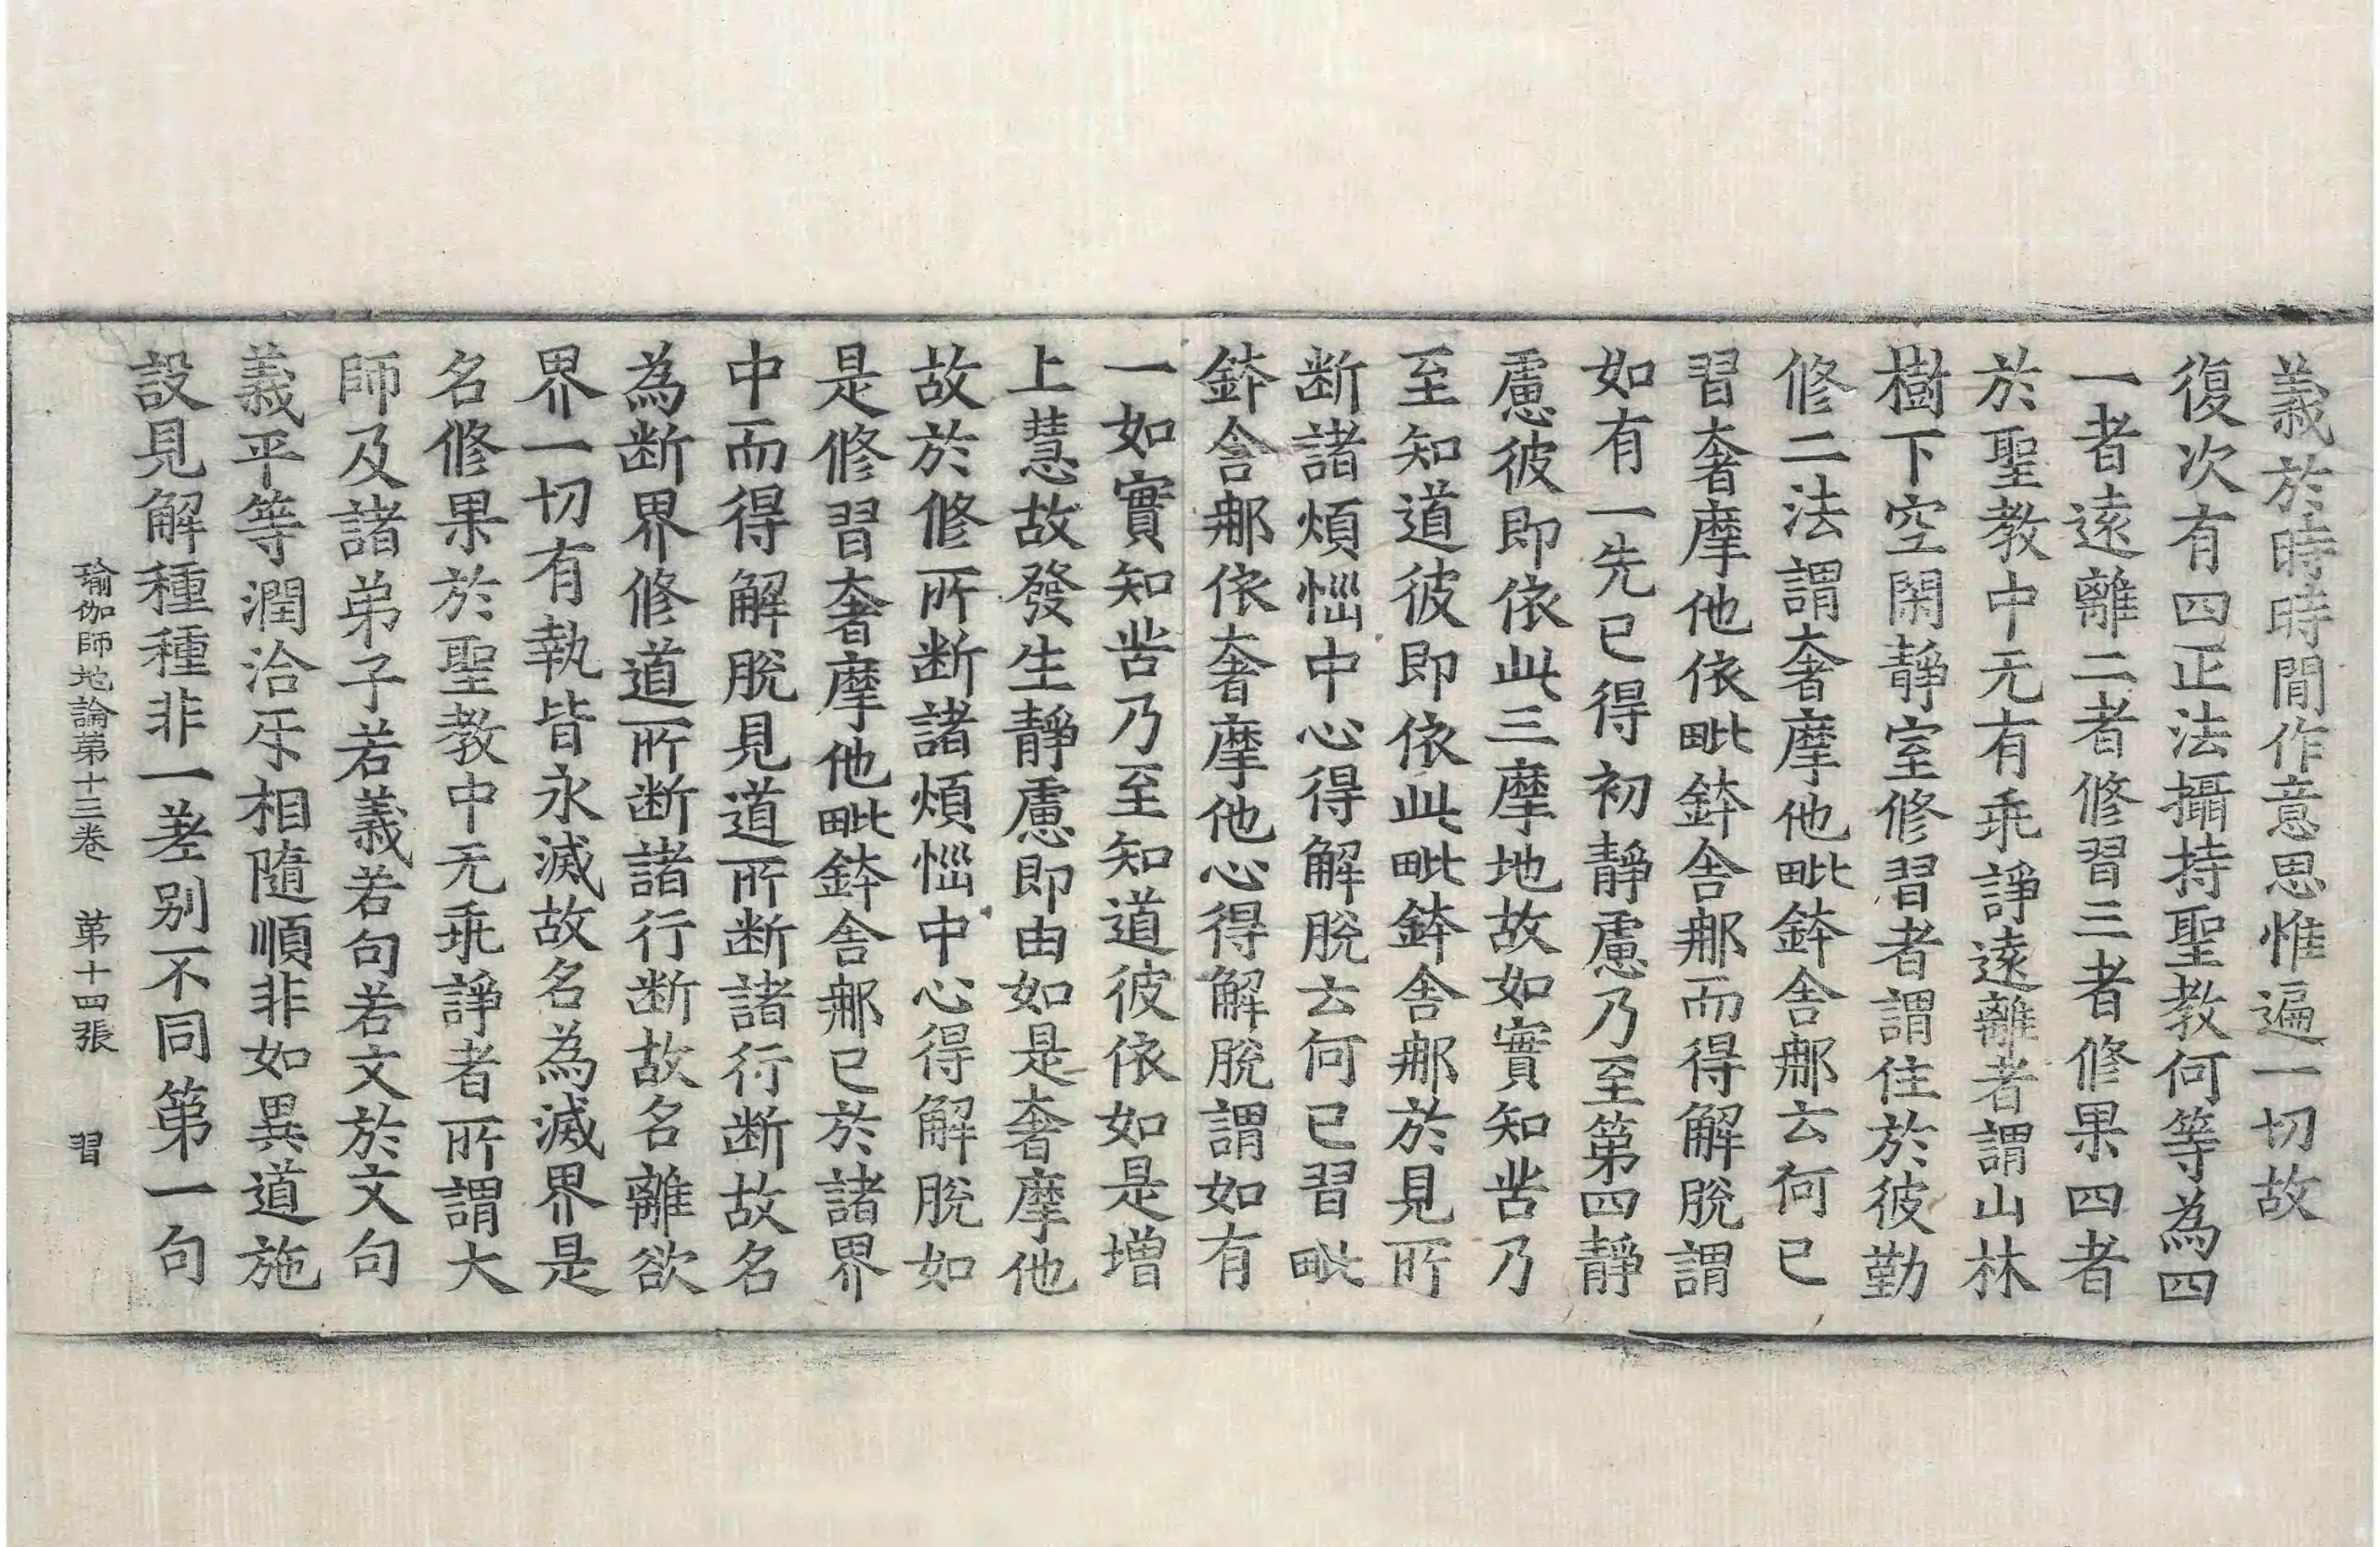 義於時時間作意思惟遍一切故
復次有四正法攝持聖教何等為四
一者遠離二者修習三者修果四者
於聖教中无有乖諍遠離者謂山林
樹下空閑靜室修習者謂住於彼勤
修二法謂奢摩他毗鉢舍那云何已
習奢摩他依毗鉢舍那而得解脫謂
如有一先已得初靜慮乃至第四靜
慮彼即依此三摩地故如實知苦乃
至知道彼即依此毗鉢舍那於見所
断諸煩惱中心得解脫云何已習毗
鉢舍那依奢摩他心得解脫謂如有
一如實知苦乃至知道彼依如是增
上慧故發生靜慮即由如是奢摩他
故於修所断諸煩惱中心得解脫如
是修習奢摩他毗鉢舍那已於諸界
中而得解脫見道所断諸行断故名
為断界修道所断諸行断故名離欲
界一切有執皆永滅故名為滅界是
名修果於聖教中无乖諍者所謂大
師及諸弟子若義若句若文於文句
義平等潤洽㸦相隨順非如異道施
設見解種種非一差別不同第一句
瑜伽師地論第十三卷 第十四張 習